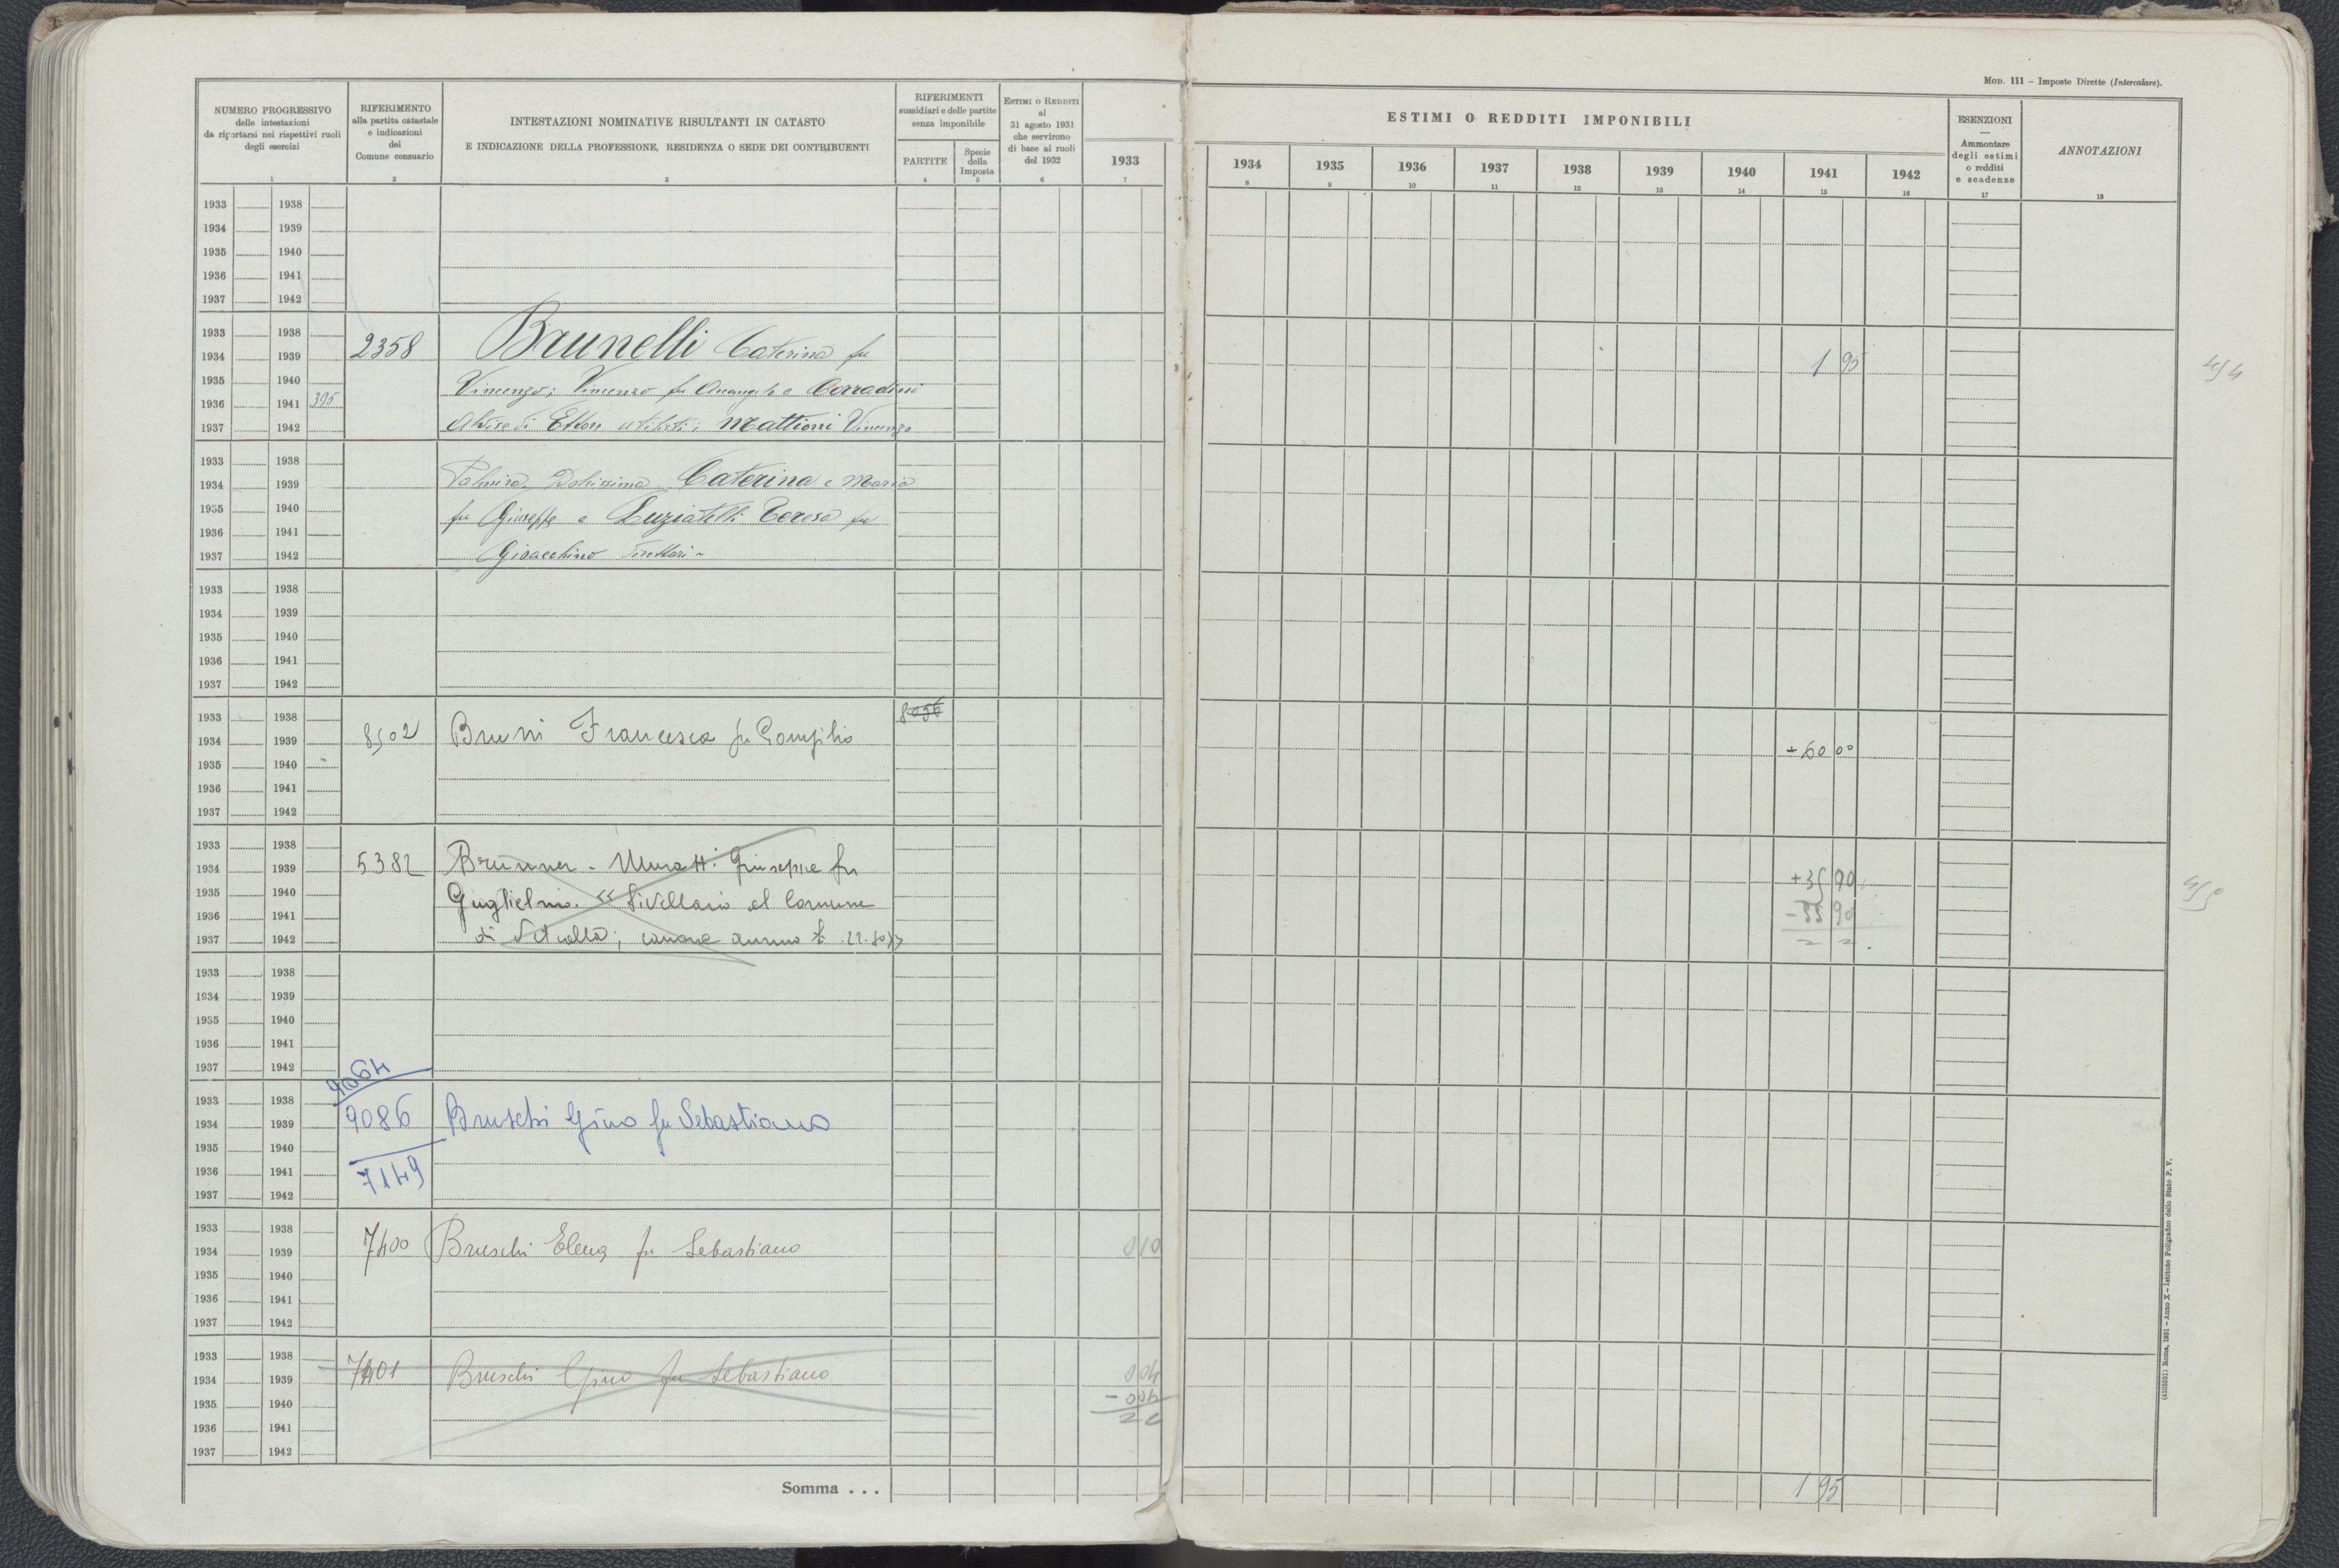 MOD. 111 – Imposte Dirette (Intercalare).
NUMERO PROGRESSIVO
delle intestazioni
da riportarsi nei rispettivi ruoli
degli esercizi
1
RIFERIMENTO
alla partita catastale
e indicazioni
del
Comune censuario
2
INTESTAZIONI NOMINATIVE RISULTANTI IN CATASTO
E INDICAZIONE DELLA PROFESSIONE, RESIDENZA O SEDE DEI CONTRIBUENTI
3
RIFERIMENTI
sussidiari e delle partite
senza imponibile
PARTITE
4
Specie
della
Imposta
5
ESTIMI O REDDITI
al
31 agosto 1931
che servirono
di base ai ruoli
del 1932
6
1933
7
ESTIMI O REDDITI IMPONIBILI
1934 1935 1936 1937 1938 1939 1940 1941 1942
8 9 10 11 12 13 14 15 16
ESENZIONI
—
Ammontare
degli estimi
o redditi
e scadenze
17
ANNOTAZIONI
18
1933 1938
1934 1939
1935 1940
1936 1941
1937 1942
1933 1938
1934 1939 2358 Brunelli Caterina fu 1 95
1935 1940 Vincenzo; Vincenzo fu e Corradini
1936 1941 395
1937 1942 di Ettore utilisti; Mattioni Vincenzo
1933 1938
1934 1939 Palmira Caterina e Maria
1935 1940 fu Giuseppe e Luziatelli Teresa fu
1936 1941
1937 1942 Gioacchino direttari
1933 1938
1934 1939
1935 1940
1936 1941
1937 1942
1933 1938
1934 1939 8502 Bruni Francesca fu Pompilio +60 00
1935 1940
1936 1941
1937 1942
1933 1938
1934 1939 5382 Brunner - Muratti Giuseppe fu +35 90
1935 1940 Guglielmo. << livellario al Comune
1936 1941 -35 90
1937 1942 di Vetralla; canone annuo £. 22.80>>
1933 1938
1934 1939
1935 1940
1936 1941
1937 1942
9064
1933 1938
1934 1939 9086 Bruschi Gino fu Sebastiano
1935 1940
1936 1941 7149
1937 1942
1933 1938
1934 1939 7400 Bruschi Elena fu Sebastiano 0 10
1935 1940
1936 1941
1937 1942
1933 1938
1934 1939 7401 Bruschi Gino fu Sebastiano 0 04
1935 1940 - 0 04
1936 1941
1937 1942
Somma . . . 1 95
(4103531) Roma, 1931 – Anno X – Istituto Poligrafico dello Stato P. V.